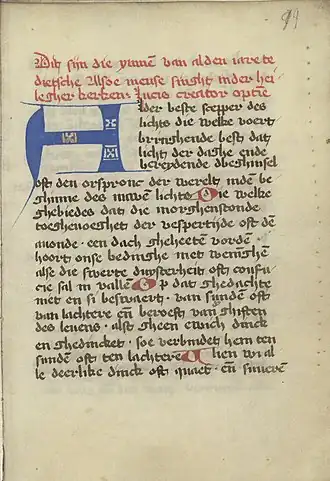 Dit sijn die ymnen van alden iaere te
dietsche Alsoe mense singht inder hei-
legher kerken: Lucis creator optime
Alder beste scepper des
lichts die welke voert
bringhende best dat
licht der daghe ende
bereydende dbeghinsel
oft den orspronc der werelt inden be
ghinne des nuwen lichts Die welke
ghebiedes dat die morghenstonde
toeghenoeght der vespertijde oft den
auonde · een dach gheheeten worden
hoort onse bedinghe met weninghen
alse die swerte duysterheit oft confu-
cie sal in vallen Op dat ghedachte
met en si beswaert · van sunden oft
van lachtere en beroeft van ghiften
des leuens · alst gheen ewich dinck
en ghedincket · soe verbindet hem ten
sunden oft ten lachtere
le deerlike dinck oft quaet · en suueren